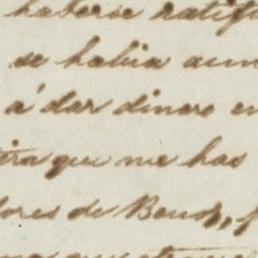 haberse ratifi
se habia aun
á dar dinero en
tira que me has
ores de Bonos, f